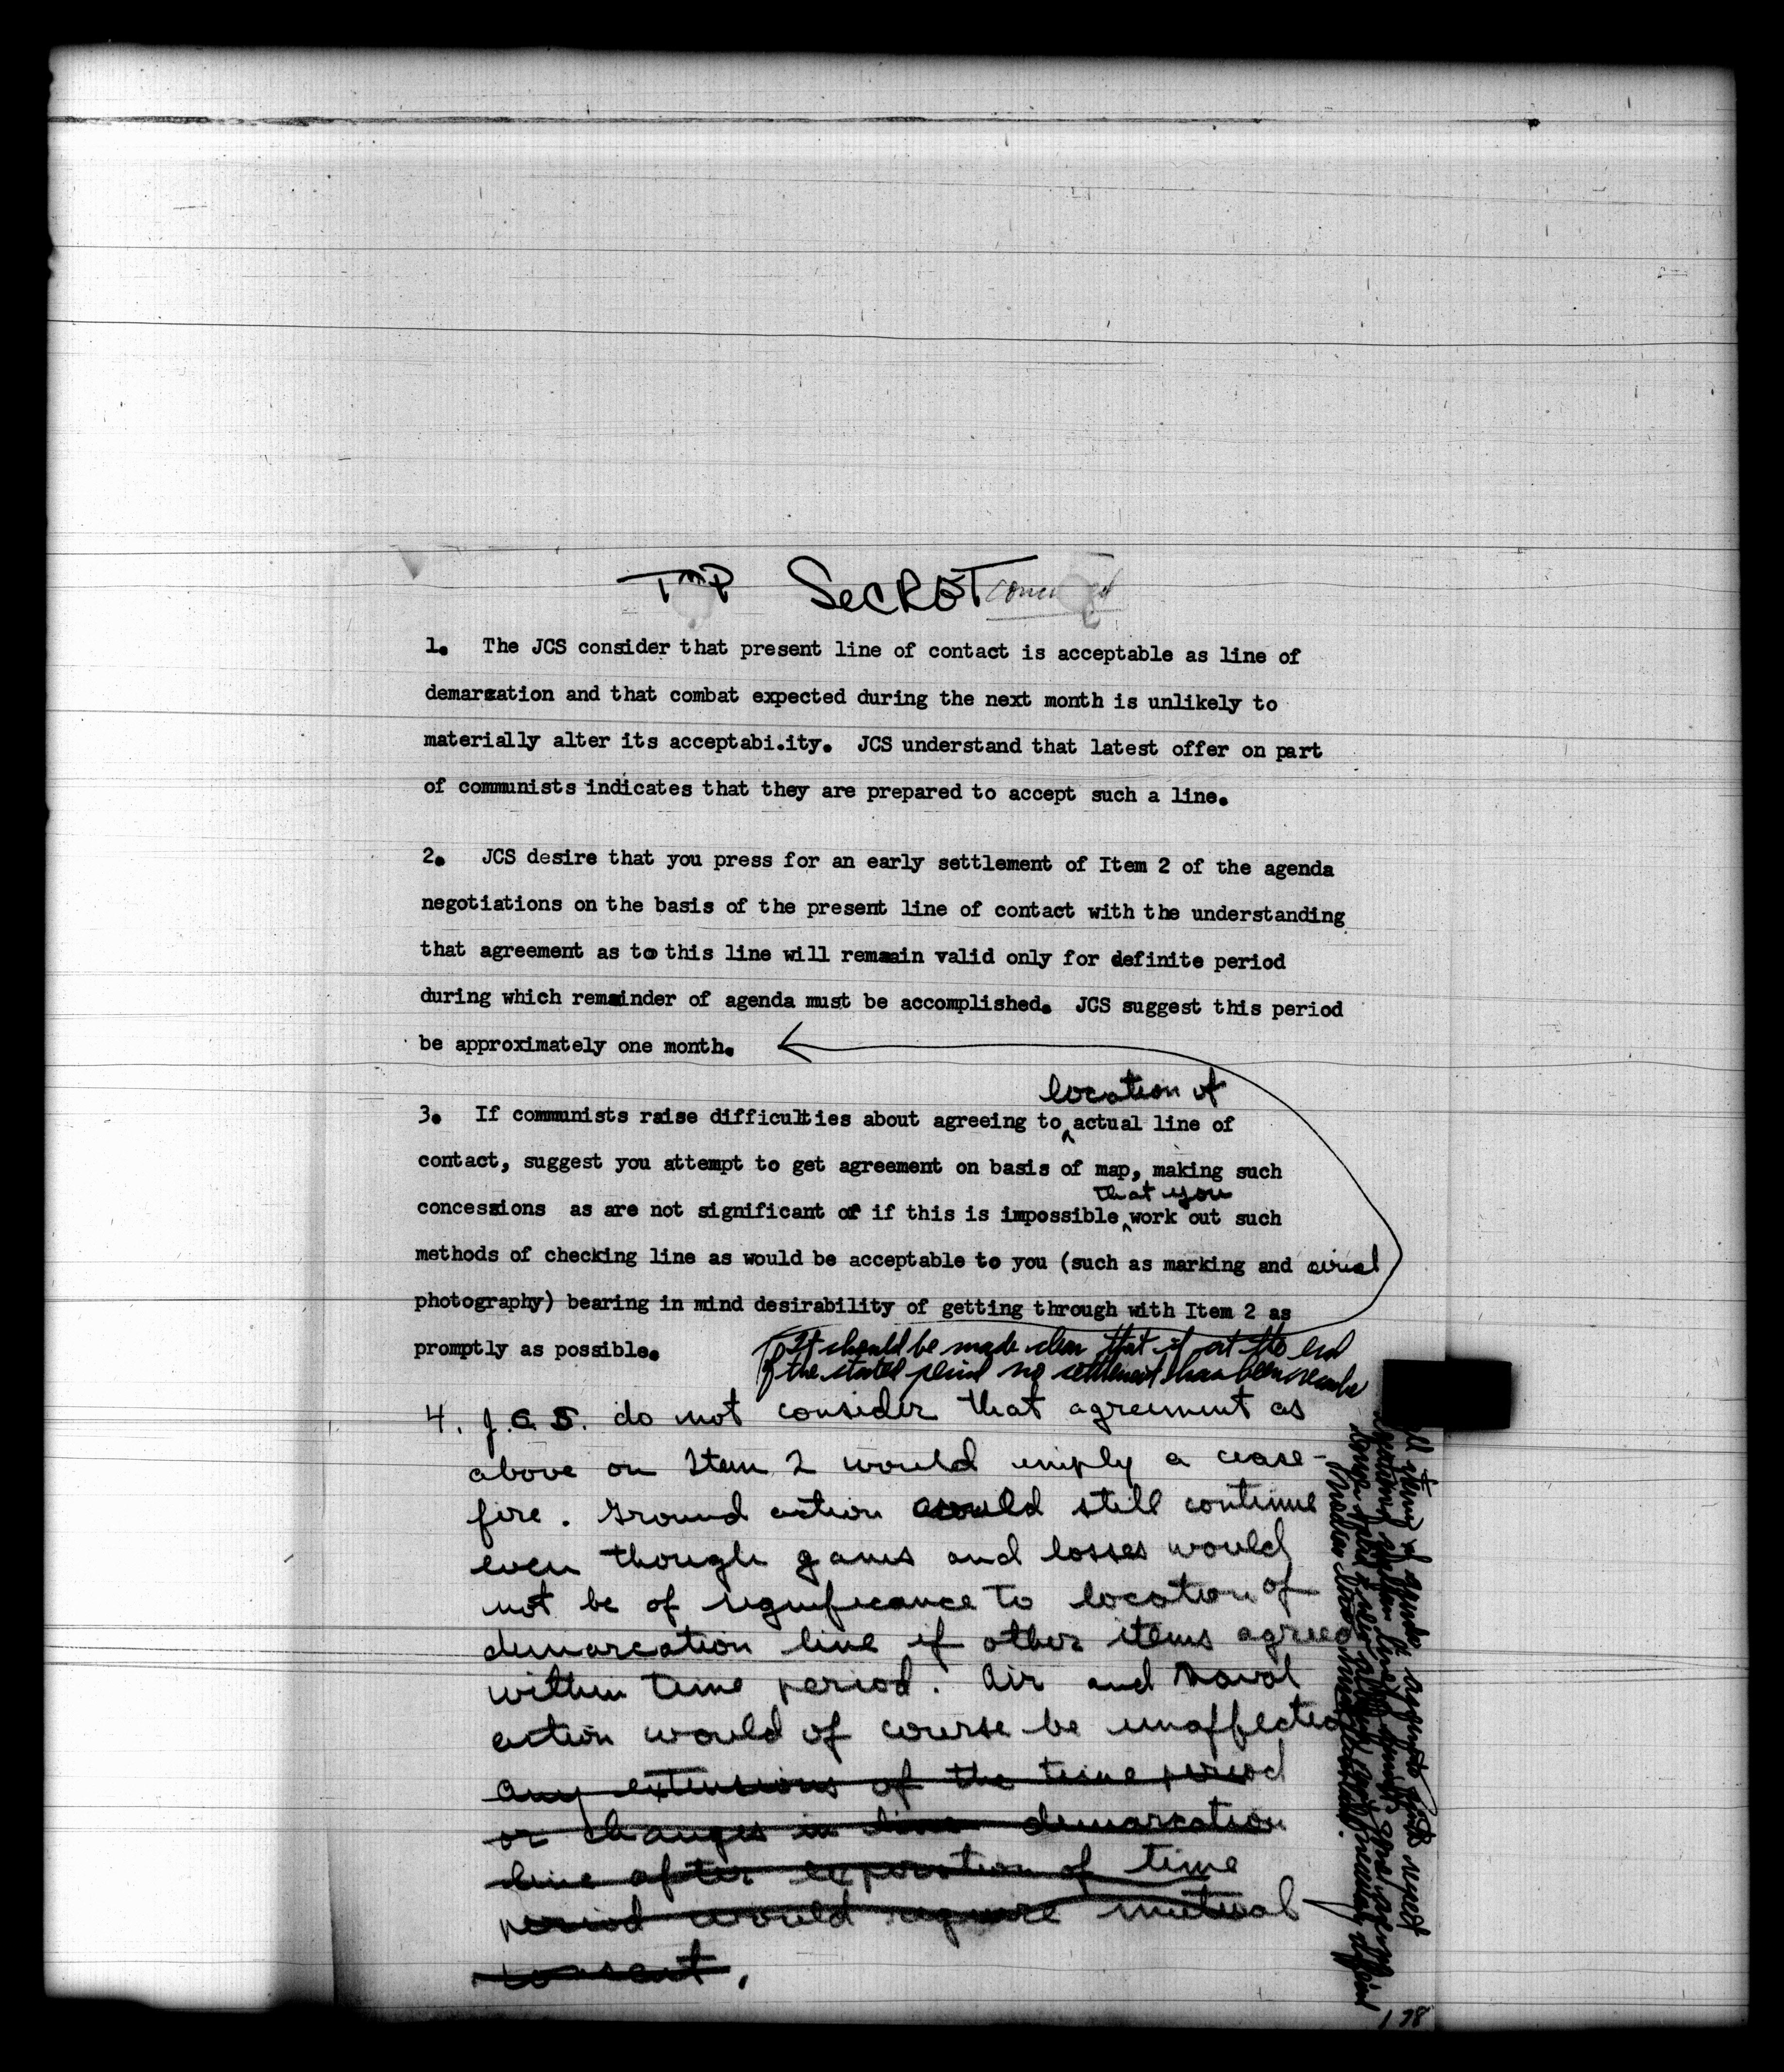 TOP SECRET
1. The JCS consider that present line of contact is acceptable as line of
demarcation and that combat expected during the next month is unlikely to
materially alter its acceptabi.ity. JCS understand that latest offer on part
of communists indicates that they are prepared to accept such a line.
2. JCS desire that you press for an early settlement of Item 2 of the agenda
negotiations on the basis of the present line of contact with the understanding
that agreement as to this line will remain valid only for definite period
during which remainder of agenda must be accomplished. JCS suggest this period
be approximately one month.
location of
3. If communists raise difficulties about agreeing to actual line of
contact, suggest you attempt to get agreement on basis of map, making such
that you
concessions as are not significant or if this is impossible work out such
methods of checking line as would be acceptable to you (such as marking and aerial
photography) bearing in mind desirability of getting through with Item 2 as
promptly as possible.
It should be made clear that if at the end
of the stated period no settlement has been
4. J.C.S. do not consider that agreement as
above on Item 2 would imply a cease-
fire. Ground action could still continue
even though gains and losses would
not be of significance to location of
demarcation line if other items agreed
within time period. Air and Naval
action would of course be unaffected
any extensions of the time period
or changes in line demarcation
line after expiration of time
period would require mutual
consent.
178